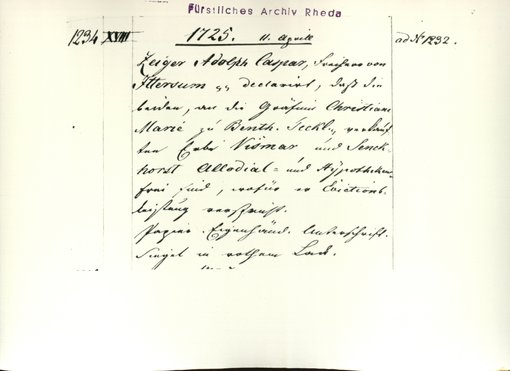 Fürstliches Archiv Rheda
1294 XVIII 1725. 11. Aprill ad No 1292.
Zeiger Adolph Caspar, Freiherr von
Ittersum declarirt, daß die
beiden, an die Gräfinn Christiane
Marie zu Benth. Teckl., verkauf
ten Erbe Vismar und Senck-
horst Allodial- und Hypotheken
frei sind, wofür er Evictions
leistung verspricht.
Papier. Eigenhänd. Unterschrift.
Siegel in rothem Lack.